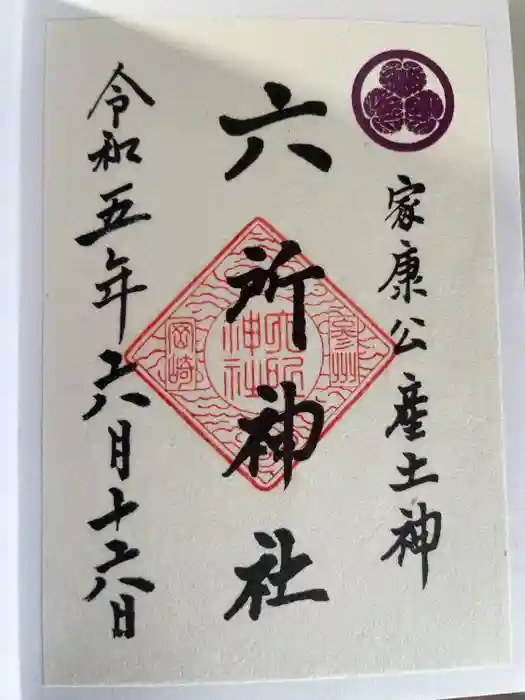 家康公産土神
六所神社
六所神社
参州
岡崎
令和五年六月十六日